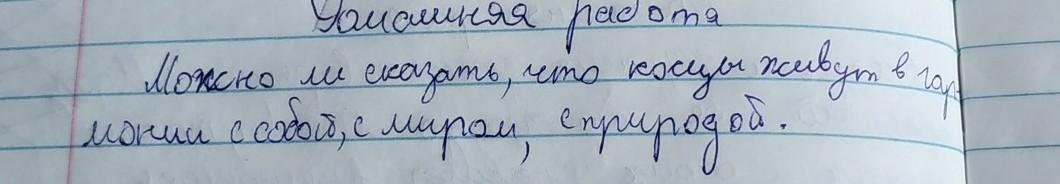 Домашняя работа
Можно ли сказать, что косцы живут в гар-
монии с собой, с миром, с природой.